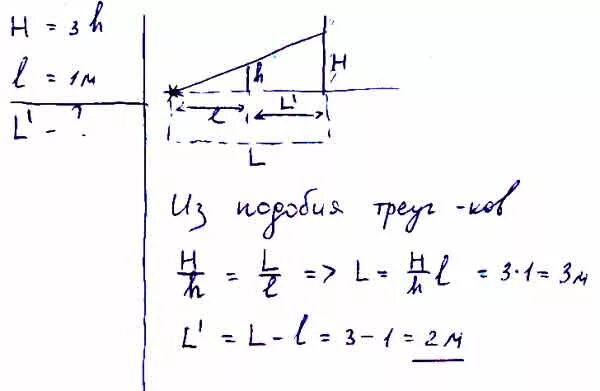 H = 3h
l = 1м
L' - ?
h
H
l
L'
L
Из подобия треуг-ков
H/h = L/l => L = H/h l = 3·1 = 3м
L' = L - l = 3 - 1 = 2м